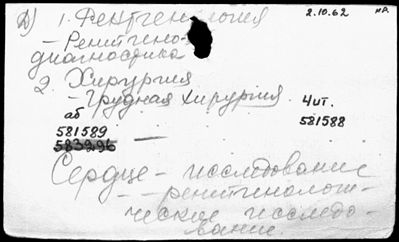 2) 1. Рентгенология 2.10.62 нр.
— Рентгено-
диагностика
2. Хирургия
— Грудная хирургия. 4 шт.
аб 581588
581589
5839296
Сердце — исследование
— — рентгенолог-
ческое исследо-
вание.